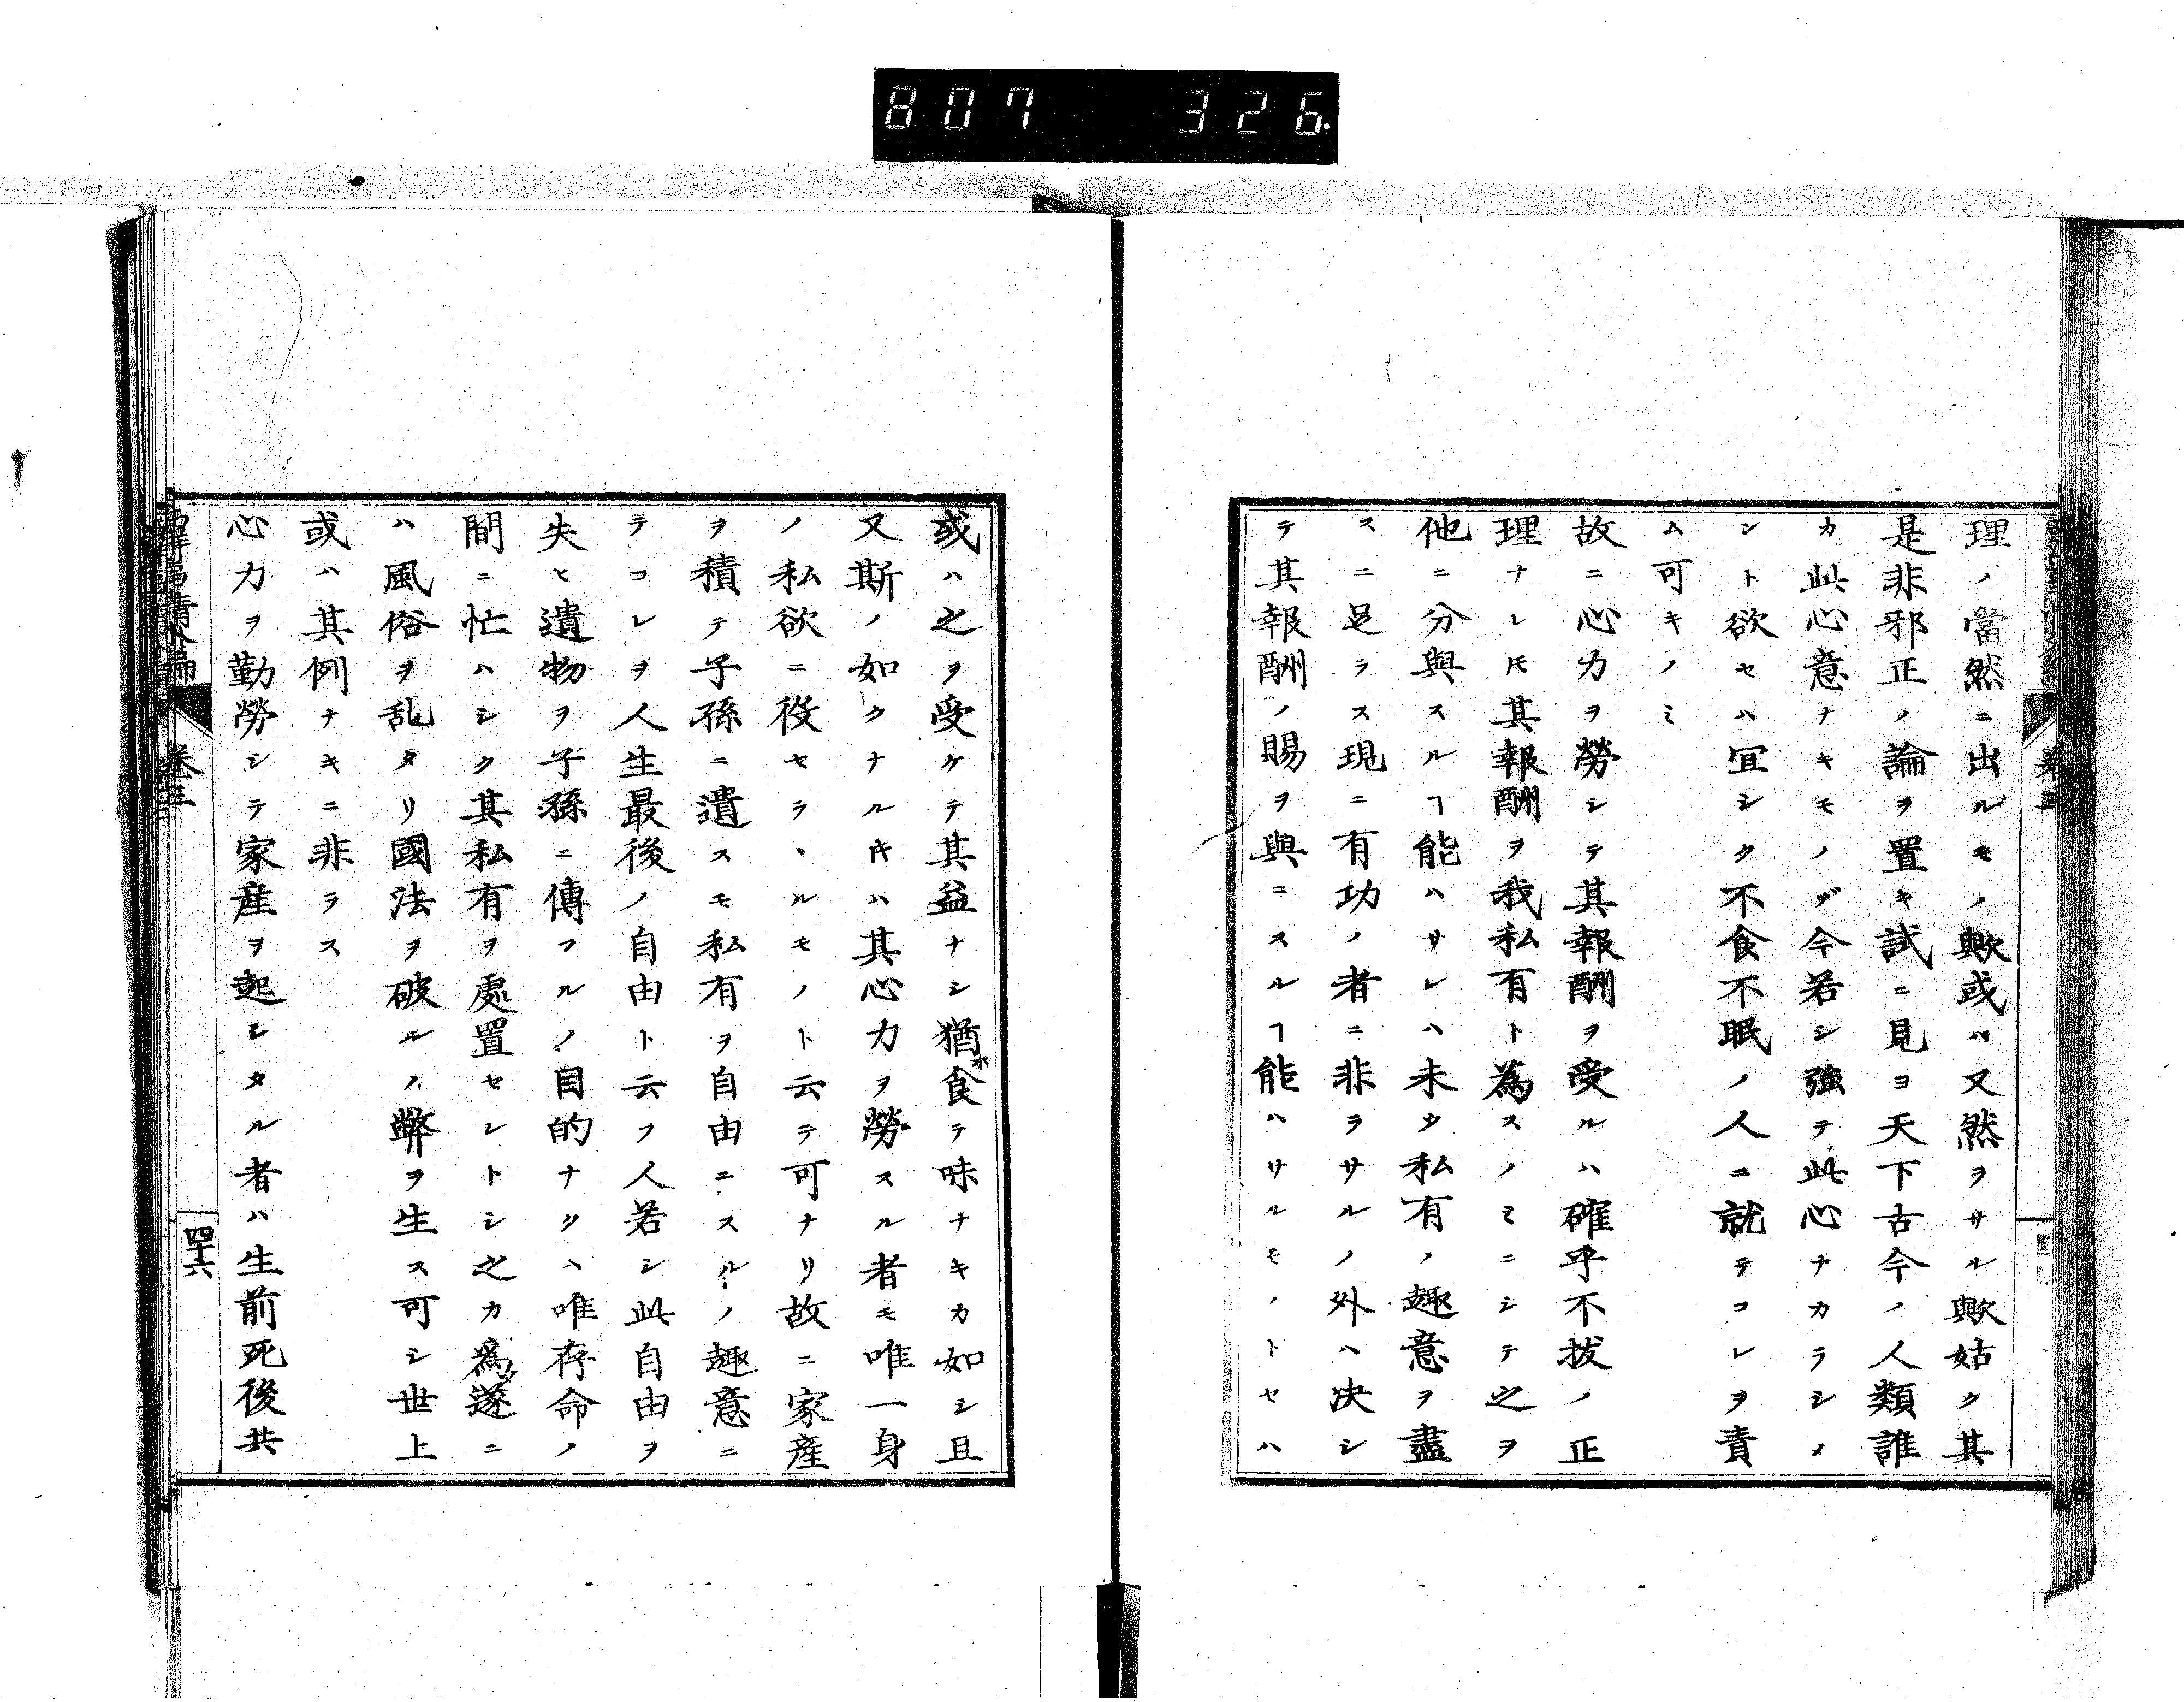 807 326
理ノ當然ニ出ルモノ歟或ハ又然ヲサル歟姑ク其
是非邪正ノ論ヲ置キ試ニ見ヨ天下古今ノ人類誰
カ此心意ナキモノゾ今若シ強テ此心ナカラシメ
ント欲セハ宜シク不食不眠ノ人ニ就テコレヲ責
ム可キノミ
故ニ心力ヲ勞シテ其報酬ヲ受ルハ確乎不拔ノ正
理ナレ𪜈其報酬ヲ我私有ト為スノミニシテ之ヲ
他ニ分與スルヿ能ハサレハ未タ私有ノ趣意ヲ盡
スニ足ラス現ニ有功ノ者ニ非ラサルノ外ハ决シ
テ其報酬ノ賜ヲ與ニスルヿ能ハサルモノトセハ
或ハ之ヲ受ケテ其益ナシ猶食テ味ナキカ如シ且
又斯ノ如クナルキハ其心力ヲ勞スル者モ唯一身
ノ私欲ニ役セラヽルモノト云テ可ナリ故ニ家産
ヲ積テ子孫ニ遺スモ私有ヲ自由ニスルノ趣意ニ
テコレヲ人生最後ノ自由ト云フ人若シ此自由ヲ
失ヒ遺物ヲ子孫ニ傳フルノ目的ナクハ唯存命ノ
間ニ忙ハシク其私有ヲ處置セントシ之カ爲遂ニ
ハ風俗ヲ乱タリ國法ヲ破ルノ弊ヲ生ス可シ世上
或ハ其例ナキニ非ラス
心力ヲ勤勞シテ家産ヲ起シタル者ハ生前死後共
卷三
四十六